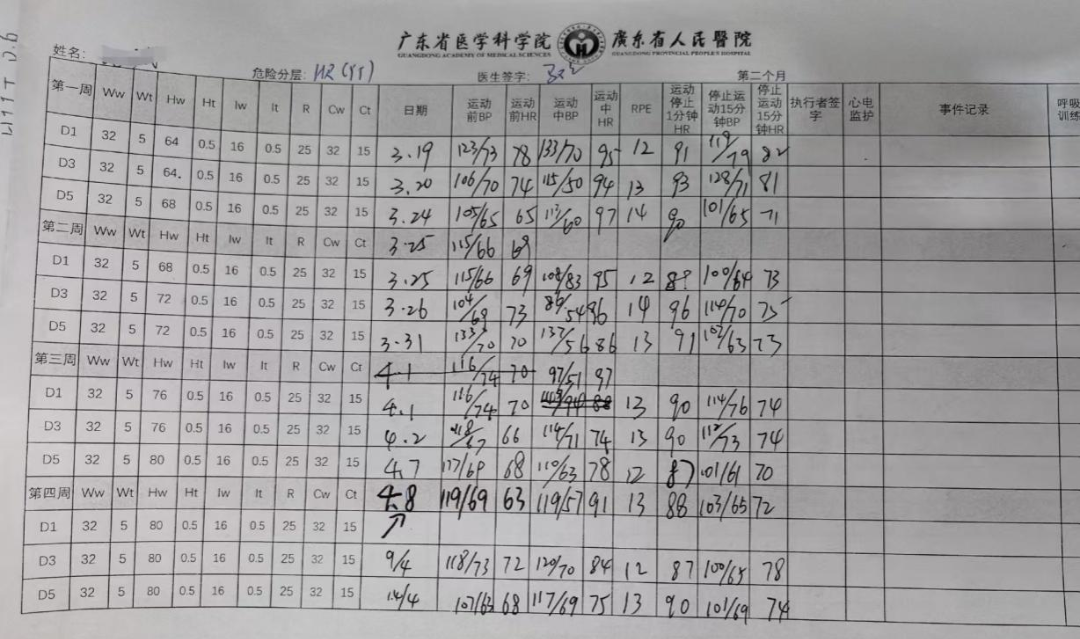 广东省医学科学院 廣东省人民醫院
GUANGDONG ACADEMY OF MEDICAL SCIENCES GUANGDONG PROVINCIAL PEOPLE'S HOSPITAL
姓名:
危险分层: 医生签字: 第二个月
第一周 Ww Wt Hw Ht Iw It R Cw Ct 日期 运动前BP 运动前HR 运动中BP 运动中HR RPE 运动停止1分钟HR 停止运动15分钟BP 停止运动15分钟HR 执行者签字 心电监护 事件记录 呼吸训练
D1 32 5 64 0.5 16 0.5 25 32 15 3.19 123/73 78 133/70 95 12 91 119/79 82
D3 32 5 64 0.5 16 0.5 25 32 15 3.20 106/70 74 115/50 94 13 93 128/71 81
D5 32 5 68 0.5 16 0.5 25 32 15 3.24 105/65 65 113/60 97 14 90 101/65 71
第二周 Ww Wt Hw Ht Iw It R Cw Ct 3.25 115/66 69
D1 32 5 68 0.5 16 0.5 25 32 15 3.25 115/66 69 108/83 95 12 88 100/64 73
D3 32 5 72 0.5 16 0.5 25 32 15 3.26 104/69 73 86 14 96 114/70 75
D5 32 5 72 0.5 16 0.5 25 32 15 3.31 133/70 70 137/56 86 13 91 102/63 73
第三周 Ww Wt Hw Ht Iw It R Cw Ct 4.1 116/74 70 97/51 87
D1 32 5 76 0.5 16 0.5 25 32 15 4.1 116/74 70 13 90 114/76 74
D3 32 5 76 0.5 16 0.5 25 32 15 4.2 118/67 66 114/71 74 13 90 112/73 74
D5 32 5 80 0.5 16 0.5 25 32 15 4.7 117/69 68 110/63 78 12 87 101/61 70
第四周 Ww Wt Hw Ht Iw It R Cw Ct 4.8 119/69 63 119/57 91 13 88 103/65 72
D1 32 5 80 0.5 16 0.5 25 32 15
D3 32 5 80 0.5 16 0.5 25 32 15 9/4 118/73 72 120/70 84 12 87 100/65 78
D5 32 5 80 0.5 16 0.5 25 32 15 14/4 107/63 68 117/69 75 13 90 101/69 74